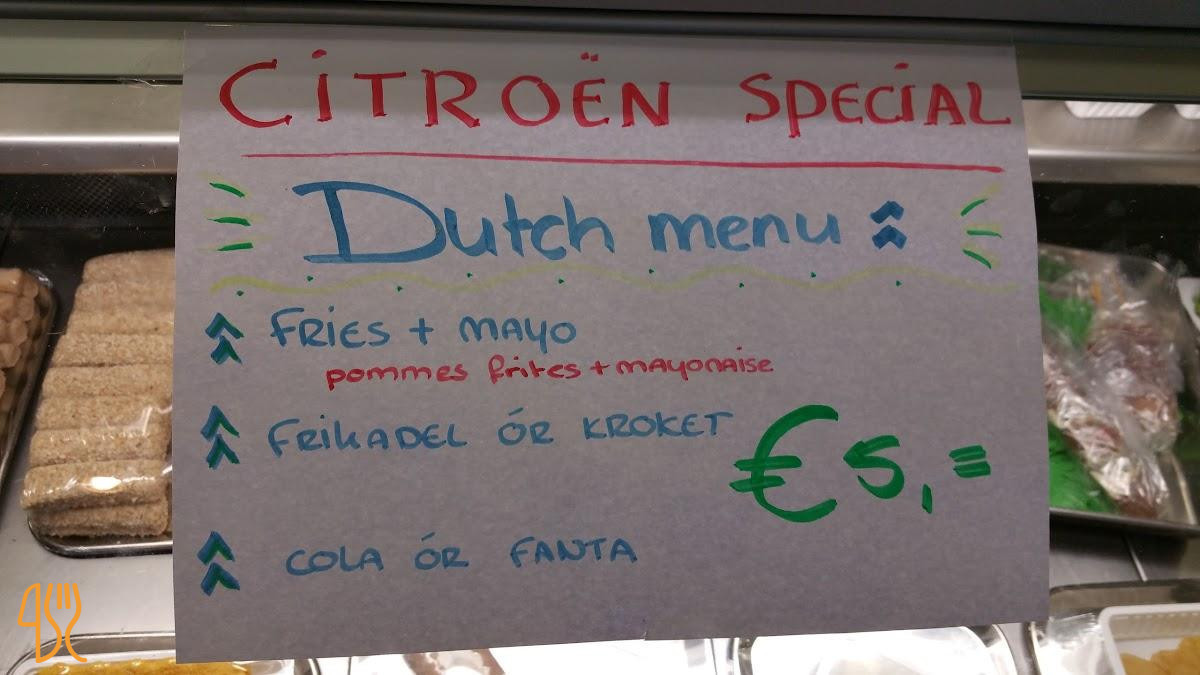 CİTROËN SPECİAL
Dutch menu
FRIES + MAYO
pommes frites + mayonaise
FRIKADEL ÓR KROKET
€5,=
COLA ÓR FANTA